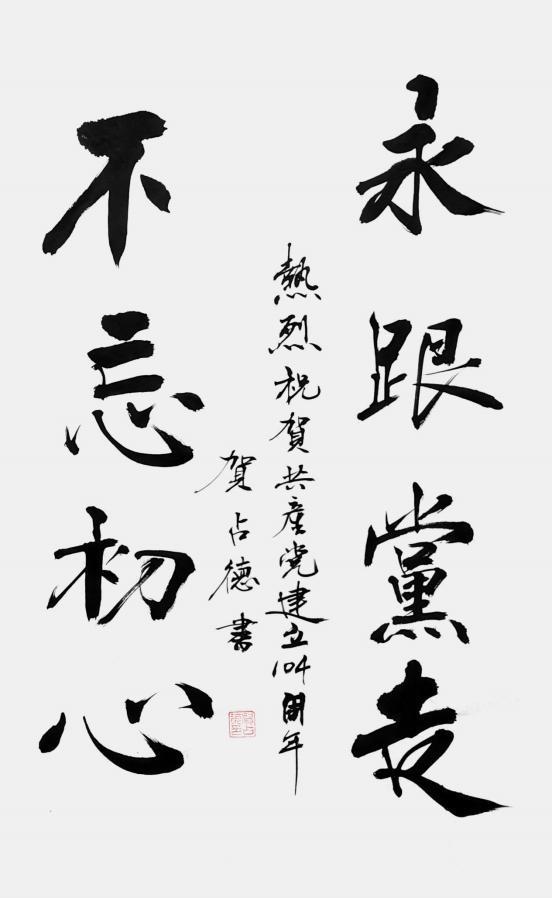 永跟黨走
不忘初心
熱烈祝賀共産党建立104周年
賀占德書